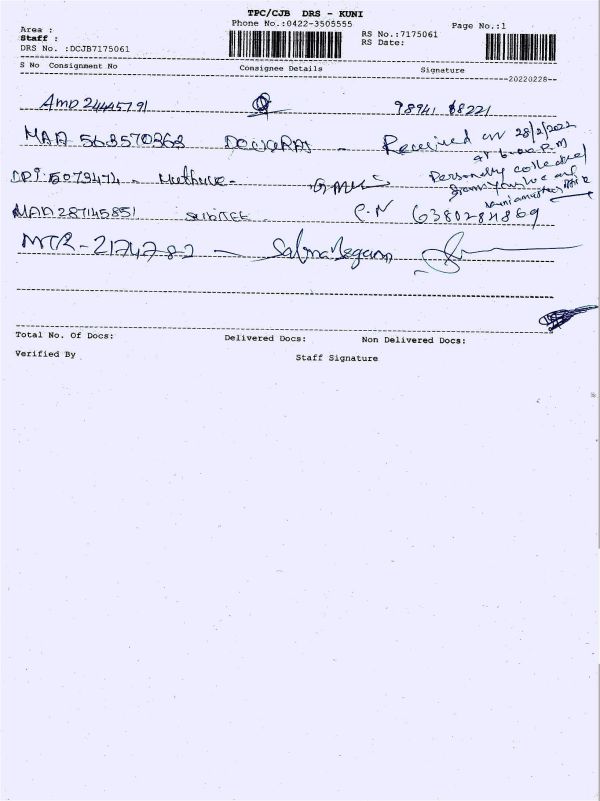 TPC/CJB DRS - KUNI
Phone No.:0422-3505555
Page No.:1
Area :
Staff :
DRS No. :DCJB7175061
RS No.:7175061
RS Date:
S No Consignment No Consignee Details Signature
20220228
AMD 24445791 98941 68221
MAA 568570368 - Received on 28/2/2022
Personally collected
DPI 5079474 - Muthu
MAA 287145851 P.N 6380284869
MTR-2174782 - Salma Begam
Total No. Of Docs: Delivered Docs: Non Delivered Docs:
Verified By Staff Signature